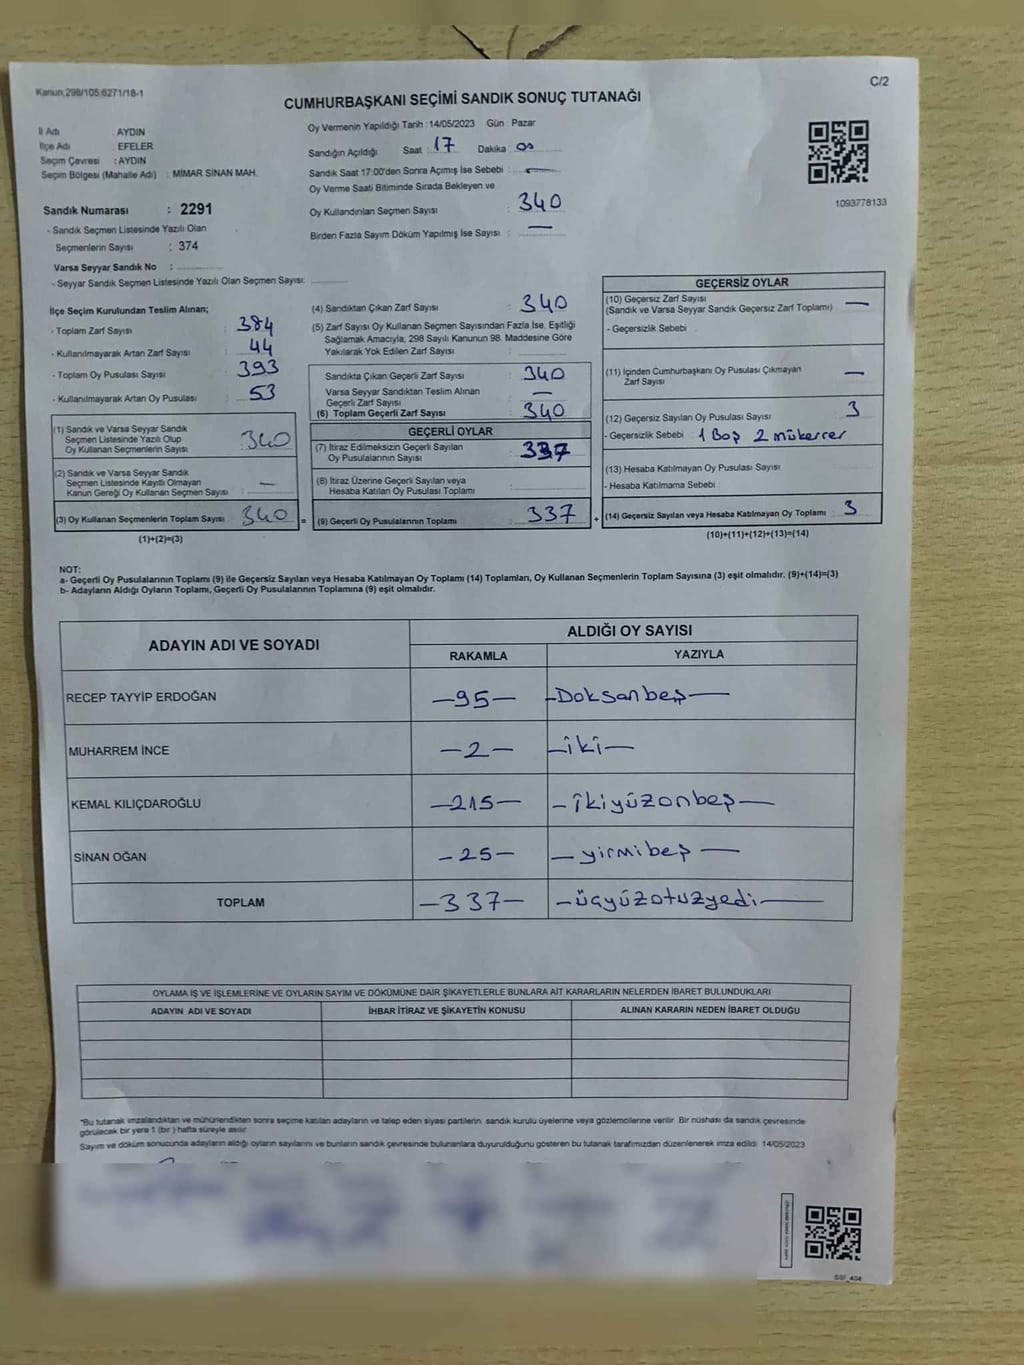 Kanun:298/105:6271/18-1
C/2
CUMHURBAŞKANI SEÇİMİ SANDIK SONUÇ TUTANAĞI
İl Adı : AYDIN
İlçe Adı : EFELER
Seçim Çevresi : AYDIN
Seçim Bölgesi (Mahalle Adı) : MİMAR SİNAN MAH.
Sandık Numarası : 2291
- Sandık Seçmen Listesinde Yazılı Olan
Seçmenlerin Sayısı : 374
Varsa Seyyar Sandık No :
- Seyyar Sandık Seçmen Listesinde Yazılı Olan Seçmen Sayısı:
Oy Vermenin Yapıldığı Tarih : 14/05/2023 Gün : Pazar
Sandığın Açıldığı Saat : 17 Dakika : 00
Sandık Saat 17:00'den Sonra Açımış İse Sebebi : —
Oy Verme Saati Bitiminde Sırada Bekleyen ve
Oy Kullandırılan Seçmen Sayısı : 340
Birden Fazla Sayım Döküm Yapılmış İse Sayısı : —
1093778133
İlçe Seçim Kurulundan Teslim Alınan;
- Toplam Zarf Sayısı : 384
- Kullanılmayarak Artan Zarf Sayısı : 44
- Toplam Oy Pusulası Sayısı : 393
- Kullanılmayarak Artan Oy Pusulası : 53
(1) Sandık ve Varsa Seyyar Sandık
Seçmen Listesinde Yazılı Olup
Oy Kullanan Seçmenlerin Sayısı : 340
(2) Sandık ve Varsa Seyyar Sandık
Seçmen Listesinde Kayıtlı Olmayan
Kanun Gereği Oy Kullanan Seçmen Sayısı : —
(3) Oy Kullanan Seçmenlerin Toplam Sayısı : 340
(1)+(2)=(3)
=
(4) Sandıktan Çıkan Zarf Sayısı : 340
(5) Zarf Sayısı Oy Kullanan Seçmen Sayısından Fazla İse, Eşitliği
Sağlamak Amacıyla, 298 Sayılı Kanunun 98. Maddesine Göre
Yakılarak Yok Edilen Zarf Sayısı :
Sandıkta Çıkan Geçerli Zarf Sayısı : 340
Varsa Seyyar Sandıktan Teslim Alınan
Geçerli Zarf Sayısı : —
(6) Toplam Geçerli Zarf Sayısı : 340
GEÇERLİ OYLAR
(7) İtiraz Edilmeksizin Geçerli Sayılan
Oy Pusulalarının Sayısı : 337
(8) İtiraz Üzerine Geçerli Sayılan veya
Hesaba Katılan Oy Pusulası Toplamı :
(9) Geçerli Oy Pusulalarının Toplamı : 337
+
GEÇERSİZ OYLAR
(10) Geçersiz Zarf Sayısı
(Sandık ve Varsa Seyyar Sandık Geçersiz Zarf Toplamı) : —
- Geçersizlik Sebebi :
(11) İçinden Cumhurbaşkanı Oy Pusulası Çıkmayan
Zarf Sayısı : —
(12) Geçersiz Sayılan Oy Pusulası Sayısı : 3
- Geçersizlik Sebebi : 1 Boş 2 mükerrer
(13) Hesaba Katılmayan Oy Pusulası Sayısı
- Hesaba Katılmama Sebebi :
(14) Geçersiz Sayılan veya Hesaba Katılmayan Oy Toplamı : 3
(10)+(11)+(12)+(13)=(14)
NOT:
a- Geçerli Oy Pusulalarının Toplamı (9) ile Geçersiz Sayılan veya Hesaba Katılmayan Oy Toplamı (14) Toplamları, Oy Kullanan Seçmenlerin Toplam Sayısına (3) eşit olmalıdır. (9)+(14)=(3)
b- Adayların Aldığı Oyların Toplamı, Geçerli Oy Pusulalarının Toplamına (9) eşit olmalıdır.
ADAYIN ADI VE SOYADI
ALDIĞI OY SAYISI
RAKAMLA YAZIYLA
RECEP TAYYİP ERDOĞAN —95— —Doksanbeş—
MUHARREM İNCE —2— —iki—
KEMAL KILIÇDAROĞLU —215— —ikiyüzonbeş—
SİNAN OĞAN —25— —yirmibeş—
TOPLAM —337— —üçyüzotuzyedi—
OYLAMA İŞ VE İŞLEMLERİNE VE OYLARIN SAYIM VE DÖKÜMÜNE DAİR ŞİKAYETLERLE BUNLARA AİT KARARLARIN NELERDEN İBARET BULUNDUKLARI
ADAYIN ADI VE SOYADI İHBAR İTİRAZ VE ŞİKAYETİN KONUSU ALINAN KARARIN NEDEN İBARET OLDUĞU
*Bu tutanak imzalandıktan ve mühürlendikten sonra seçime katılan adayların ve talep eden siyasi partilerin sandık kurulu üyelerine veya gözlemcilerine verilir. Bir nüshası da sandık çevresinde
görülecek bir yere 1 (bir) hafta süreyle asılır.
Sayım ve döküm sonucunda adayların aldığı oyların sayılarını ve bunların sandık çevresinde bulunanlara duyurulduğunu gösteren bu tutanak tarafımızdan düzenlenerek imza edildi 14/05/2023